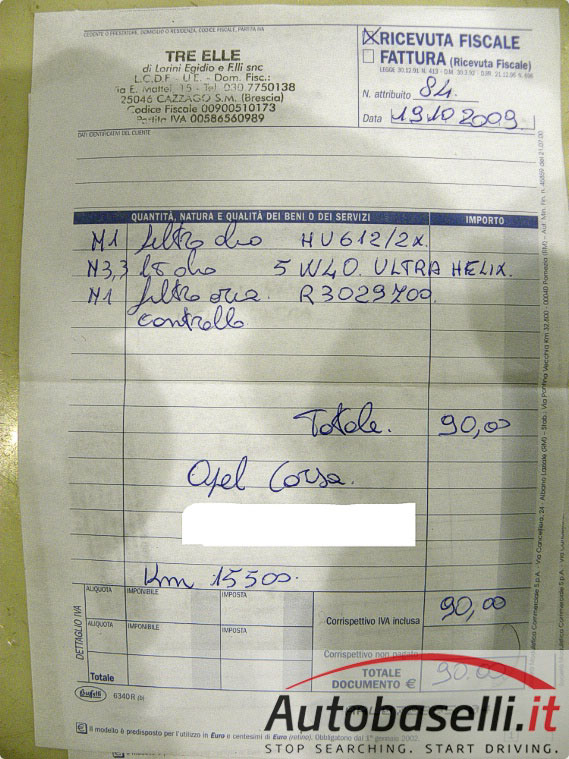 CEDENTE O PRESTATORE, DOMICILIO O RESIDENZA, CODICE FISCALE, PARTITA IVA
TRE ELLE
di Lorini Egidio e F.lli snc
Via E. Mattei 15 - Tel. 030 7750138
25046 CAZZAGO S.M. (Brescia)
Codice Fiscale 00900510173
Partita IVA 00586560989
RICEVUTA FISCALE
FATTURA (Ricevuta Fiscale)
N. attribuito 84
Data 19 10 2009
DATI IDENTIFICATIVI DEL CLIENTE
QUANTITÀ, NATURA E QUALITÀ DEI BENI O DEI SERVIZI IMPORTO
N1 filtro olio HU612/2x
N3,3 lt olio 5W40 ULTRA HELIX.
N1 filtro aria. R3029700.
controllo
Totale. 90,00
Opel Corsa.
Km 15500.
DETTAGLIO IVA
ALIQUOTA IMPONIBILE IMPOSTA
ALIQUOTA IMPONIBILE IMPOSTA
Totale
Corrispettivo IVA inclusa 90,00
Corrispettivo non pagato
TOTALE DOCUMENTO € 90.00
Buffetti 6340R
Il modello è predisposto per l'utilizzo in Euro e centesimi di Euro (retino). Obbligatorio dal 1° gennaio 2002.
Autobaselli.it
STOP SEARCHING. START DRIVING.